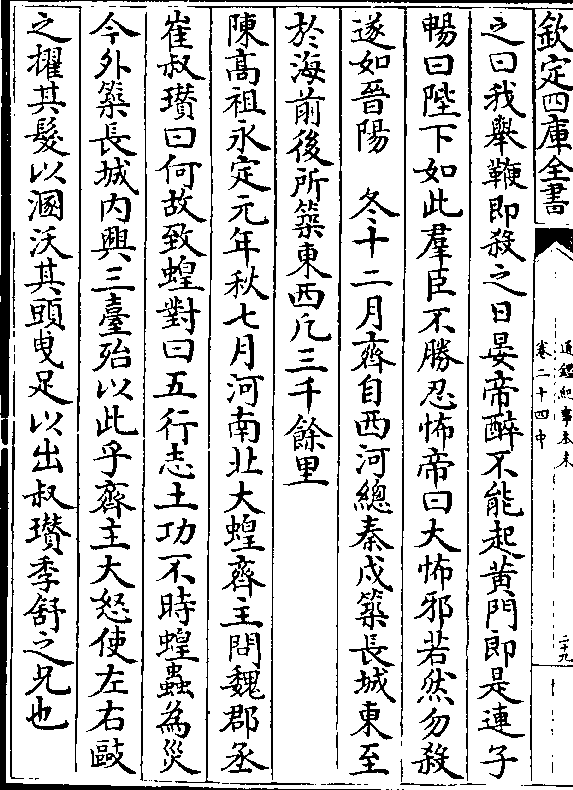 欽定四庫全書
通鑑紀事本末
卷二十四中
二十九
之曰我舉鞭即殺之日晏帝醉不能起黄門郎是連子
暢曰陛下如此羣臣不勝忍怖帝曰大怖邪若然勿殺
遂如晉陽　冬十二月齊自西河總秦戍築長城東至
於海前後所築東西凡三千餘里
陳高祖永定元年秋七月河南北大蝗齊主問魏郡丞
崔叔瓚曰何故致蝗對曰五行志土功不時蝗蟲為災
今外築長城内興三臺殆以此乎齊主大怒使左右毆
之擢其髮以溷沃其頭曳足以出叔瓚季舒之兄也